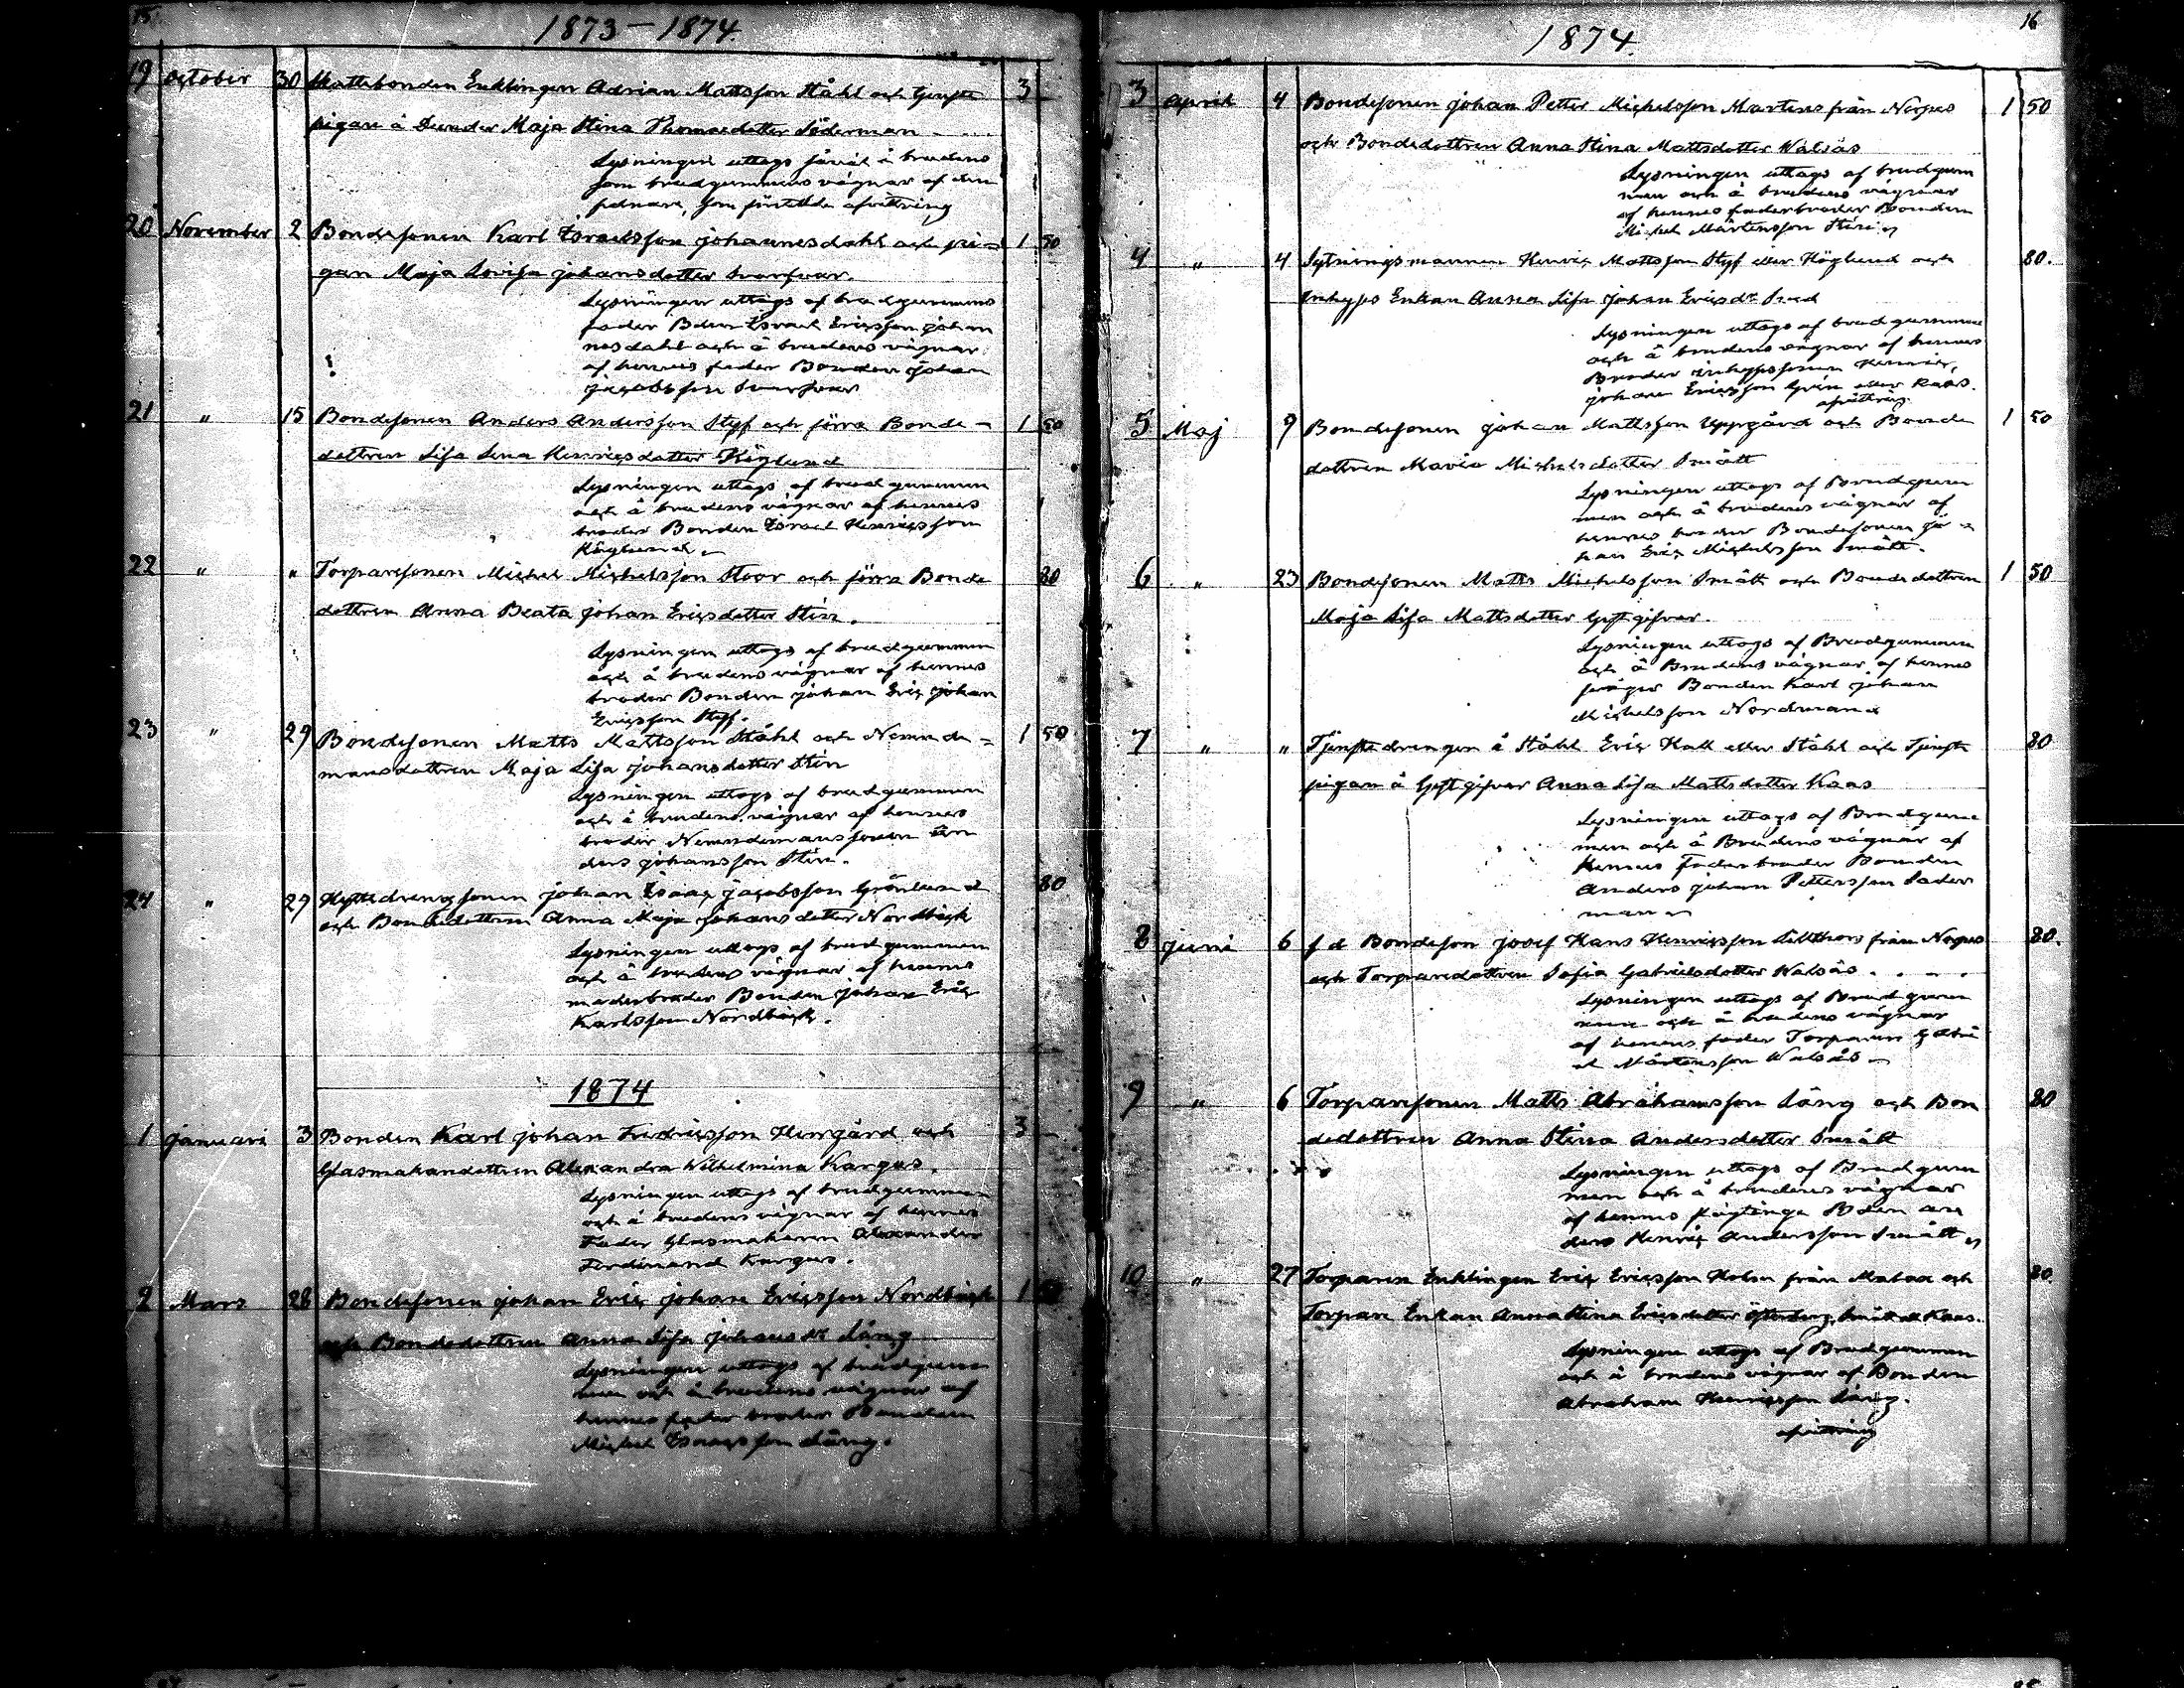 15.
1873 – 1874.
19 October 30 Enklingen Adrian Mattsson Ståhl och tjenste 3 –
pigan å Maja Stina Thomasdotter Söderman
Lysningen uttogs såväl å brudens
som brudgummens vägnar af den
sednare, som företedde afvittring
20 November 2 Bondesonen Karl Israelsson Johannesdahl och pi= 1 50
gan Maja Lovisa Johansdotter Svarfvar
Lysningen uttogs af brudgummens
fader Bden Israel Ericsson Johan
nesdahl och å brudens vägnar
af hennes fader Bonden Johan
Jacobsson Svarfvar
21 " 15 Bondesonen Anders Andersson Styf och förra Bonde- 1 50
dottren Lisa Lena Henricsdotter Höglund
Lysningen uttogs af brudgummen
och å brudens vägnar af hennes
broder Bonden Israel Henricsson
Höglund.
22 " " Torparesonen Michel Michelsson Stoor och förra Bonde 80
dottren Anna Beata Johan Ericsdotter Stén.
Lysningen uttogs af brudgummen
och å brudens vägnar af hennes
broder Bonden Johan Eric Johan
Ericsson Styf.
23 " 29 Bondesonen Matts Mattsson Ståhl och Nemnde= 1 50
mansdottren Maja Lisa Johansdotter Stén
Lysningen uttogs af brudgummen
och å brudens vägnar af hennes
broder Nemndemanssonen An
ders Johansson Stén.
24 " 29 Johan Isaac Jacobsson Grönlund 80
och Bondedottren Anna Maja Johansdotter Nordbäck
Lysningen uttogs af brudgummen
och å brudens vägnar af hennes
moderbroder Bonden Johan Eric
Karlsson Nordbäck.
1874
1 Januari 3 Bonden Karl Johan Fredricsson Herrgård och 3 –
Glasmakaredottren Alexandra Wilhelmina Kargus.
Lysningen uttogs af brudgummen
och å brudens vägnar af hennes
Fader Glasmakaren Alexander
Ferdinand Kargus.
2 Mars 28 Bondesonen Johan Eric Johan Ericsson Nordbäck 1 50
och Bondedottren Anna Lisa Johansdr Lång
Lysningen uttogs af brudgum
men och å brudens vägnar af
hennes fader broder Bonden
Michel Isaacsson Lång.
16
1874.
3 April 4 Bondesonen Johan Petter Michelsson Martens från Nerpes 1 50
och Bondedottren Anna Stina Mattsdotter Walsås
Lysningen uttogs af brudgum
men och å brudens vägnar
af hennes faderbroder Bonden
Michel Mårtensson Stén
4 " 4 Sytningsmannen Henric Mattsson Styf eller Höglund och 80.
Inhyses Enkan Anna Lisa Johan Ericsdr
Lysningen uttogs af brudgummen
och å brudens vägnar af hennes
Broder inhysessonen Henric
Johan Ericsson eller Kaas.
afvittring.
5 Maj 9 Bondesonen Johan Mattsson Uppgård och Bonde 1 50
dottren Maria Michelsdotter Smått
Lysningen uttogs af Brudgum
men och å brudens vägnar af
hennes broder Bondesonen Jo=
han Eric Michelsson Smått.
6 " 23 Bondesonen Matts Michelsson Smått och Bondedottren 1 50
Maja Lisa Mattsdotter Gestgifvar.
Lysningen uttogs af Brudgummen
och å Brudens vägnar af hennes
svåger Bonden Karl Johan
Michelsson Nordman
7 " " Tjenstedrengen å Ståhl Eric Kall eller Ståhl och Tjenste 80
pigan å Gestgifvar Anna Lisa Mattsdotter Kaas
Lysningen uttogs af Brudgum
men och å Brudens vägnar af
Hennes Faderbroder Bonden
Anders Johan Pettersson Söder
man
8 Juni 6 f d Bondeson Josef Hans Henricsson Lillthors från Nerpes 80.
och Torparedottren Sofia Gabrielsdotter Walsås
Lysningen uttogs af Brudgum
men och å brudens vägnar
af hennes fader Torparen Gabri
el Mårtensson Walsås
9 " 6 Torparesonen Matts Abrahamsson Lång och Bon 80
dedottren Anna Stina Andersdotter Smått
Lysningen uttogs af Brudgum
men och å brudens vägnar
af hennes Bden An
ders Henric Andersson Smått
10 " 27 Torparen Enklingen Eric Ericsson Holm från Malax och 80.
Torpare Enkan Anna Stina Ericsdotter Kaas.
Lysningen uttogs af Brudgumman
och å brudens vägnar af Bonden
Abraham Henricsson Lång.
afvittring